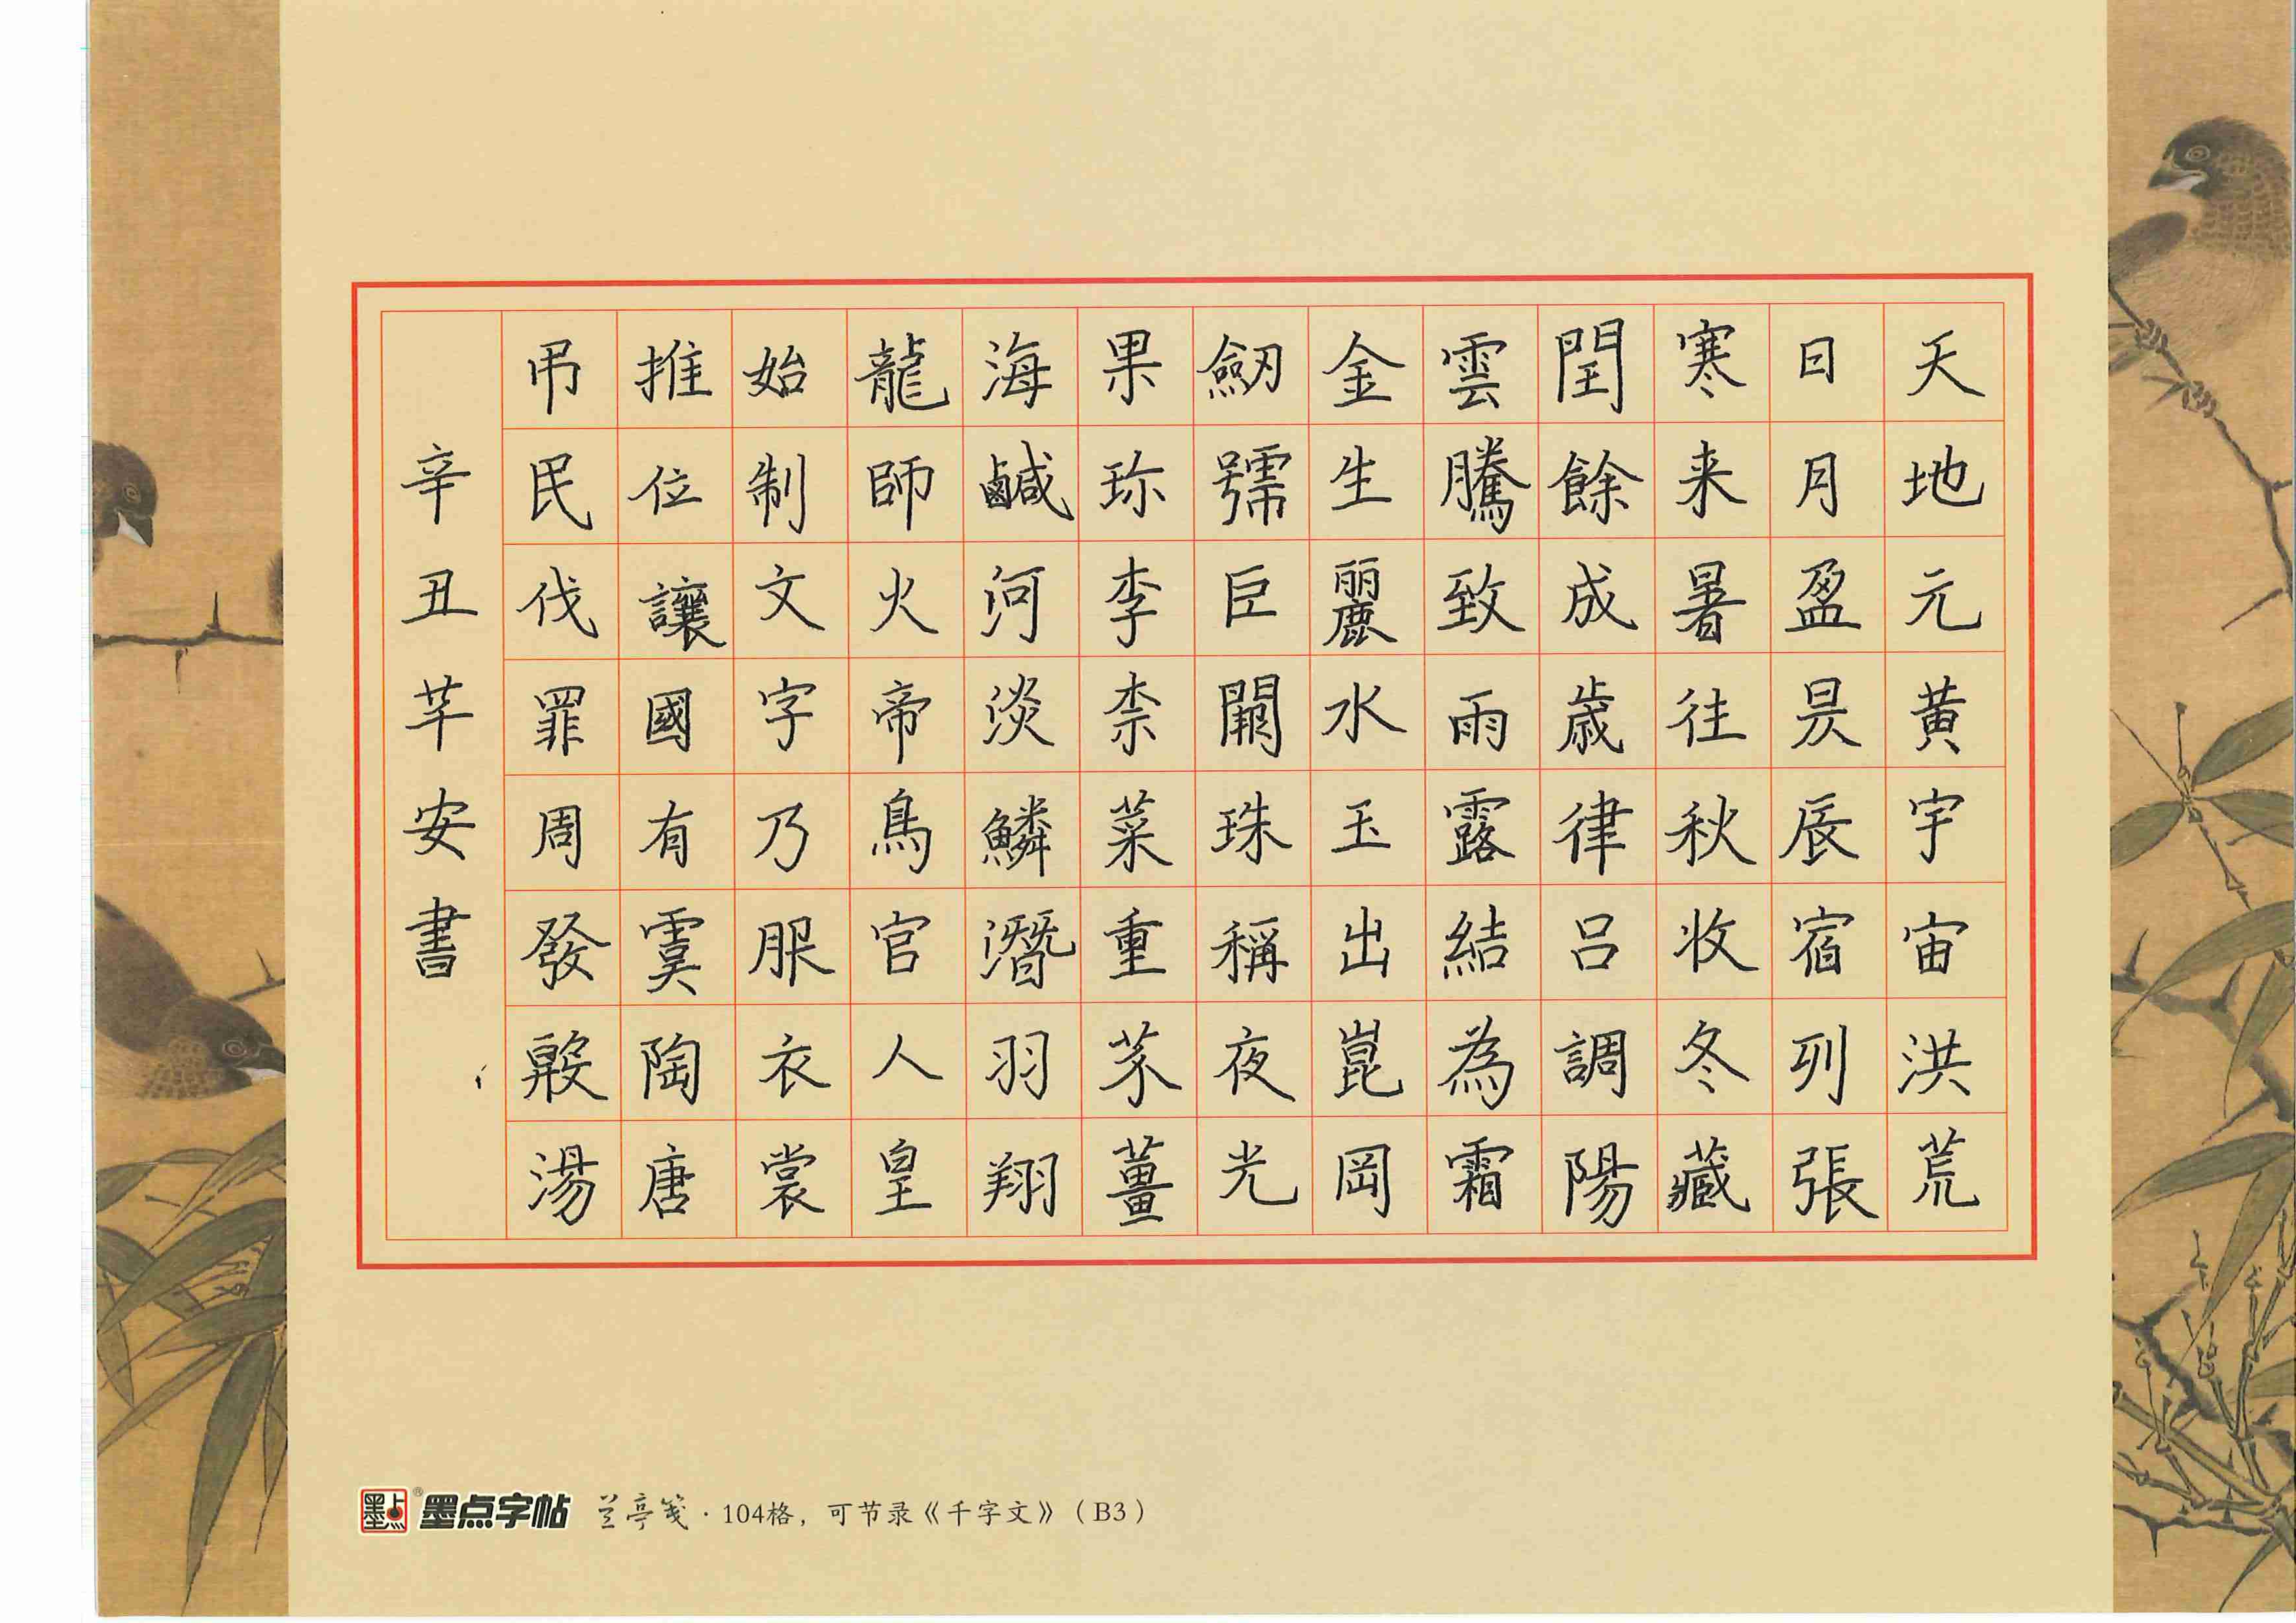 天地元黄宇宙洪荒
日月盈昃辰宿列張
寒来暑往秋收冬藏
閏餘成歲律吕調陽
雲騰致雨露結為霜
金生麗水玉出崑岡
劒號巨闕珠稱夜光
果珎李柰菜重芥薑
海鹹河淡鱗潛羽翔
龍師火帝鳥官人皇
始制文字乃服衣裳
推位讓國有虞陶唐
吊民伐罪周發殷湯
辛丑芊安書
墨点® 墨点字帖 兰亭笺·104格，可节录《千字文》（B3）